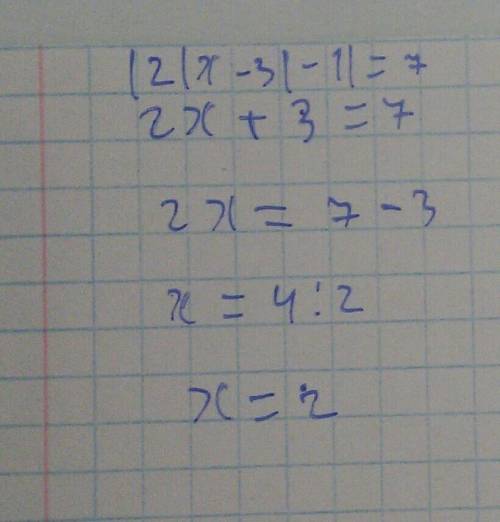 |2|x - 3| - 1| = 7
2x + 3 = 7
2x = 7 - 3
x = 4 : 2
x = 2